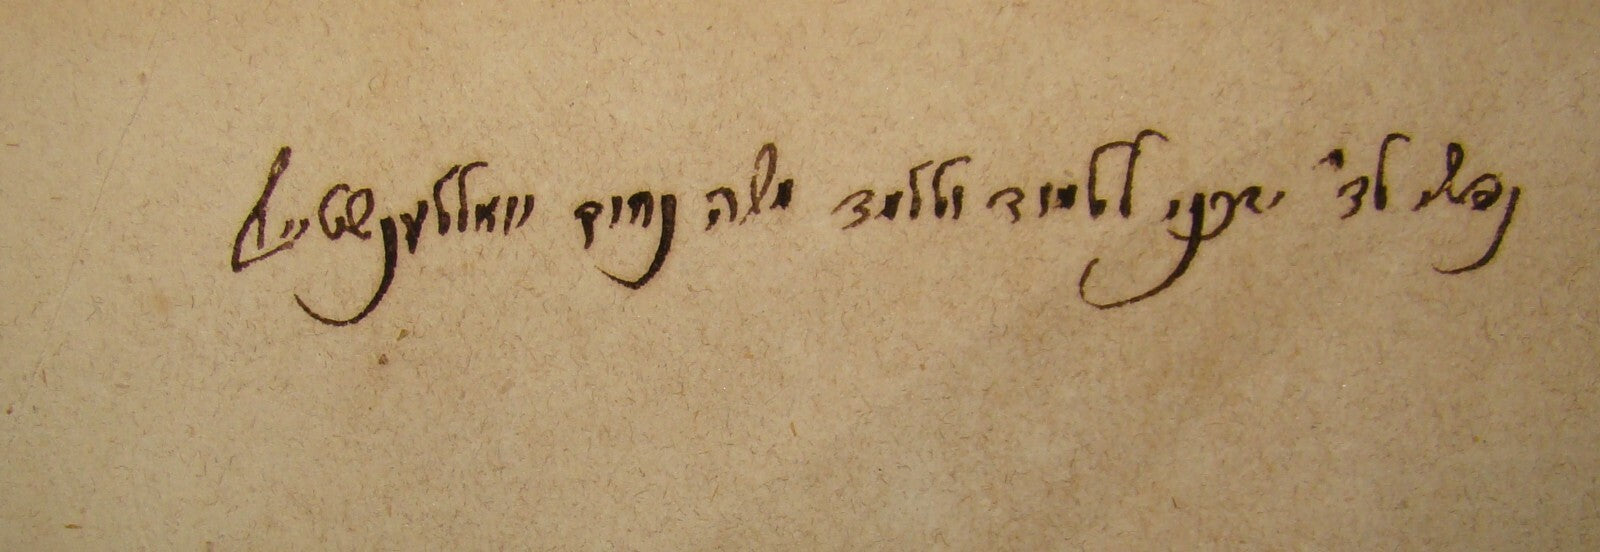 נפשי לד' יזכני ללמוד וללמד משה נחום וואללענשטיין